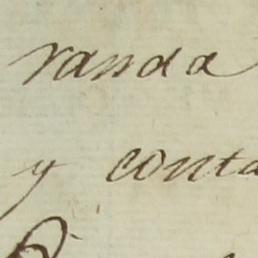 randa
y conta